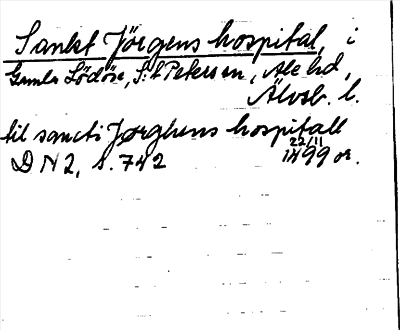 Sankt Jörgens hospital, i
Gamla Lödöse, S:t Petersen, Ale hd,
Älvsb. l.
til sancti Jørghens hospitall
22/11
DN 2, s. 742 1499 or.